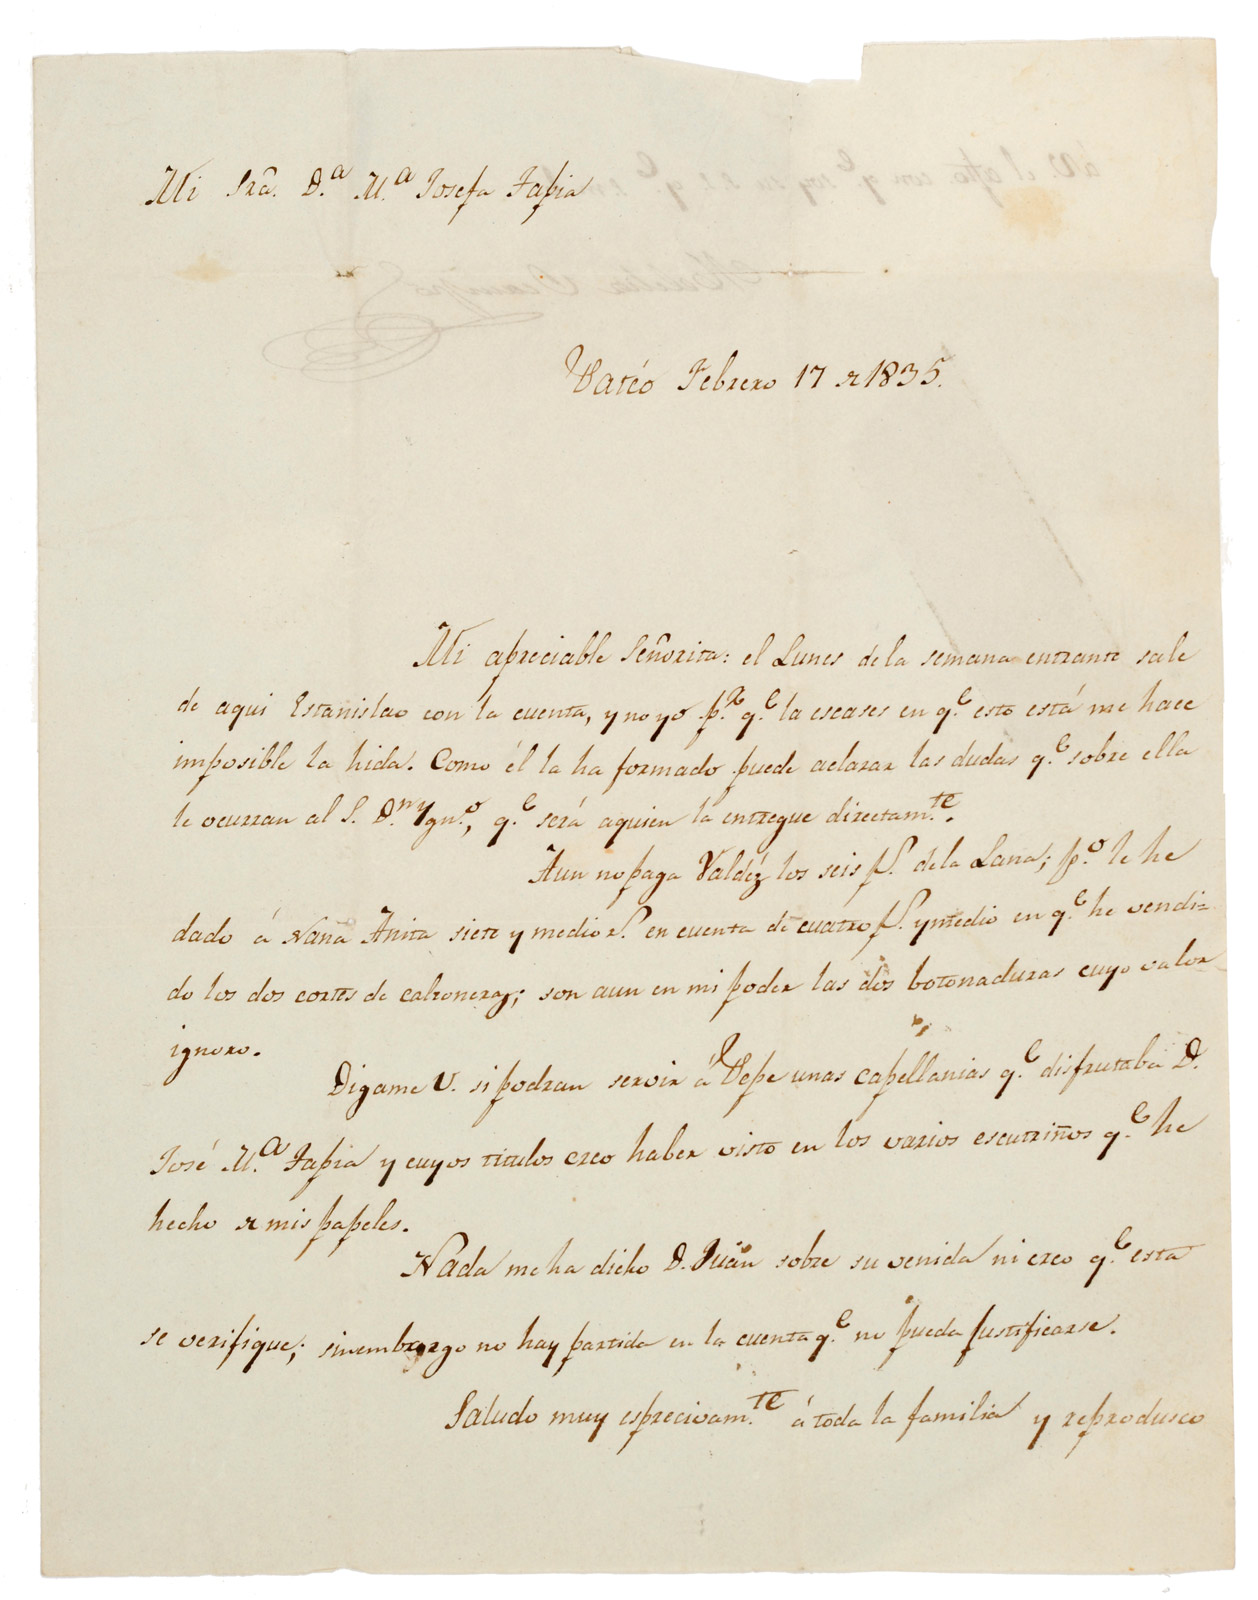 Mi Sra. D.a M.a Josefa Tapia
Pateo Febrero 17 de 1835.
Mi apreciable Señorita: el Lunes de la semana entrante sale
de aqui Estanislao con la cuenta, y no yo p.r q.e la escases en q.e esto está me hace
imposible la hida. Como él la ha formado puede aclarar las dudas q.e sobre ella
le ocurran al S. D.n Ygn.o, q.e será aquien la entregue directam.te.
Aun no paga Valdéz los seis p.s de la Lana; p.o le he
dado á Nana Anita siete y medio r.s en cuenta de cuatro p.s y medio en q.e he vendi=
do los dos cortes de calzoneras; son aun en mi poder las dos botonaduras cuyo valor
ignoro.
Digame V. si podran servir á Pepe unas capellanias q.e disfrutaba D.
José M.a Tapia y cuyos titulos creo haber visto en los varios escutriños q.e he
hecho de mis papeles.
Nada me ha dicho D. Juan sobre su venida ni creo q.e esta
se verifique; sinembargo no hay partida en la cuenta q.e no pueda justificarse.
Saludo muy esprecivam.te á toda la familia y reprodusco